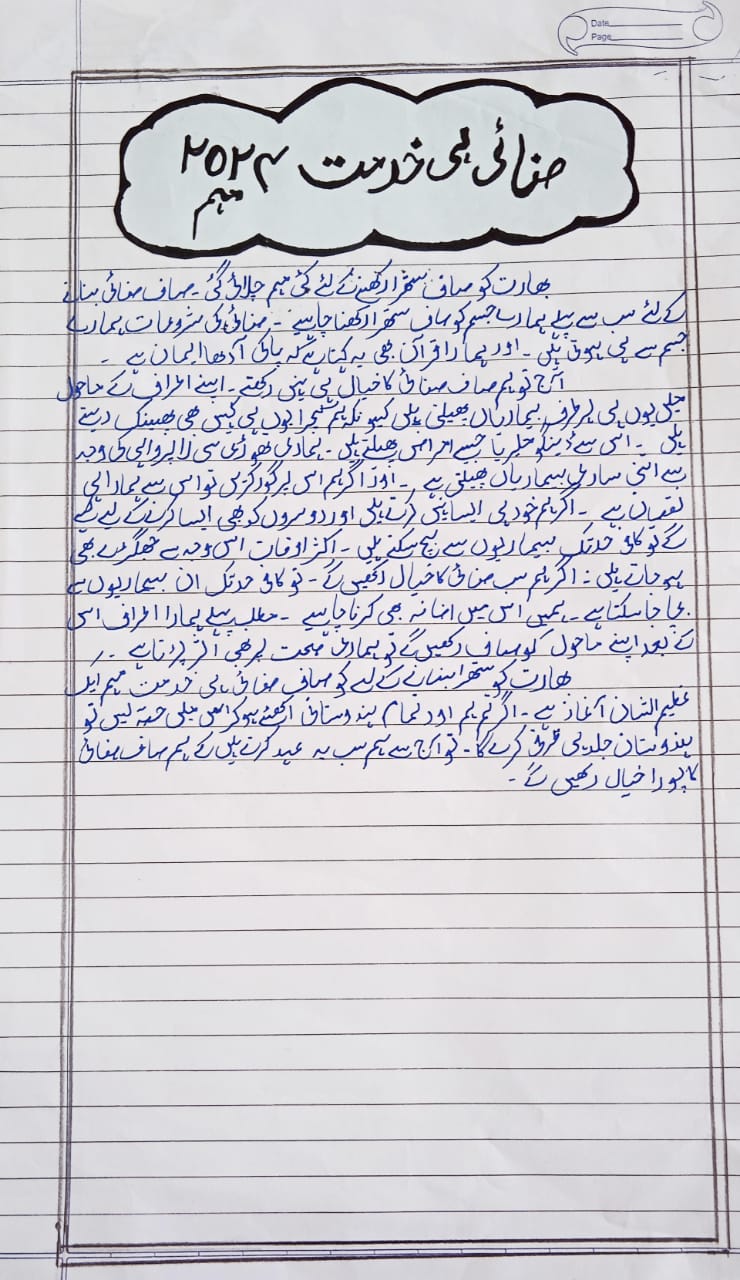 Date
Page
صفائی ہی خدمت ۲۰۲۴
مہم
بھارت کو صاف ستھرا رکھنے کے لئے کئی مہم چلائی گئی۔ صاف صفائی بنانے
کے لئے سب سے پہلے ہمارے جسم کو صاف ستھرا رکھنا چاہیے ۔ صفائی کی شروعات ہمارے
جسم سے ہی ہوتی ہیں ۔ اور ہمارا قرآن بھی یہ کہتا ہے کہ پاکی آدھا ایمان ہے ۔
آج تو ہم صاف صفائی کا خیال ہی نہیں رکھتے ۔ اپنے اطراف کے ماحول
میں یوں ہی ہر طرف بیماریاں پھیلتی ہیں کیونکہ ہم کچرا یوں ہی کہیں بھی پھینک دیتے
ہیں ۔ اس سے ڈینگو ملیریا جیسے امراض پھیلتے ہیں ۔ ہماری تھوڑی سی لاپرواہی کی وجہ
سے اتنی ساری بیماریاں پھیلتی ہے ۔ اور اگر ہم اس پر غور کریں تو اس سے ہمارا ہی
نقصان ہے ۔ اگر ہم خود ہی ایسا نہیں کرتے ہیں اور دوسروں کو بھی ایسا کرنے کے لیے
گے تو کافی حد تک بیماریوں سے بچ سکتے ہیں ۔ اکثر اوقات اس وجہ سے جھگڑے بھی
ہو جاتے ہیں ۔ اگر ہم سب صفائی کا خیال رکھیں گے ۔ تو کافی حد تک ان بیماریوں سے
بچا جا سکتا ہے ۔ ہمیں اس میں اضافہ بھی کرنا چاہیے ۔ مطلب پہلے ہمارا اطراف اس
کے بعد اپنے ماحول کو صاف رکھیں گے تو ہماری صحت پر بھی اثر پڑتا ہے ۔
بھارت کو ستھرا بنانے کے لیے کو صاف صفائی ہی خدمت مہم ایک
عظیم الشان آغاز ہے ۔ اگر تم ہم اور تمام ہندوستانی اکھٹے ہو کر اس میں حصہ لیں تو
ہندوستان جلد ہی ترقی کرے گا ۔ تو آج سے ہم سب یہ عہد کرتے ہیں کے ہم صاف صفائی
کا پورا خیال رکھیں گے ۔